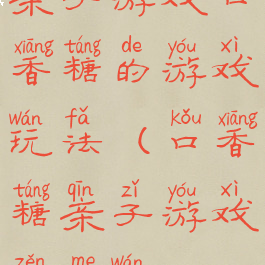 亲子游戏口
xiāng táng de yóu xì
香糖的游戏
wán fǎ kǒu xiāng
玩法（口香
táng qīn zǐ yóu xì
糖亲子游戏
zěn me wán